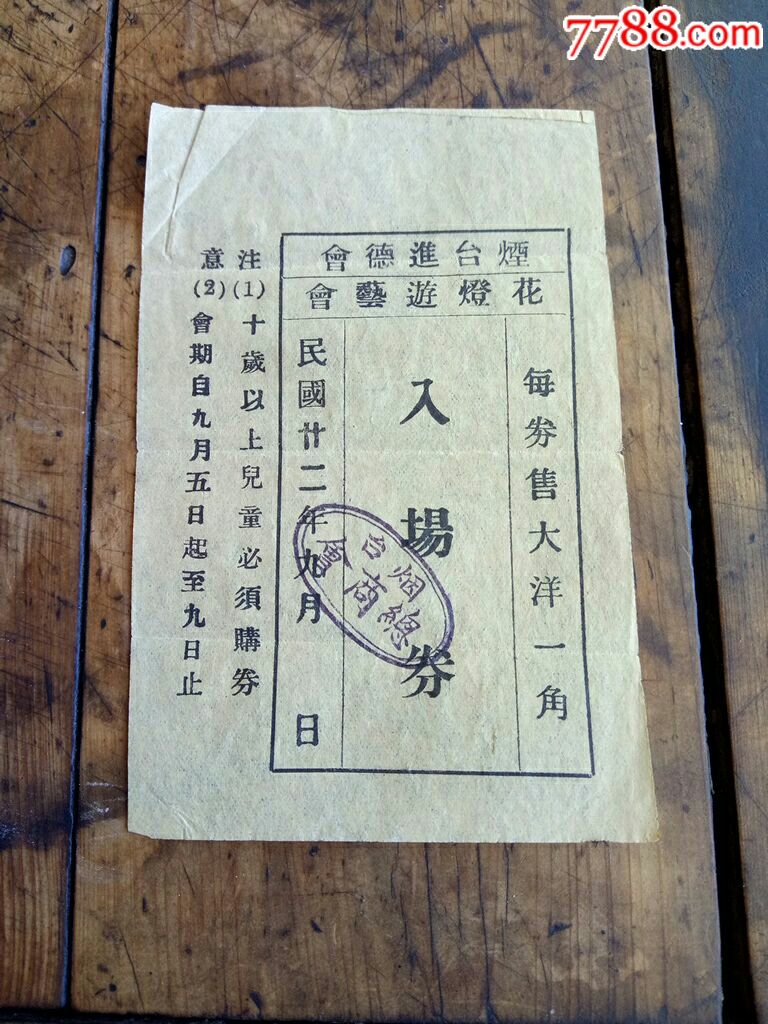 7788.com
煙台進德會
花燈遊藝會
每券售大洋一角
入場券
民國廿二年九月 日
烟台
總商會
注意
(1)十歲以上兒童必須購券
(2)會期自九月五日起至九日止